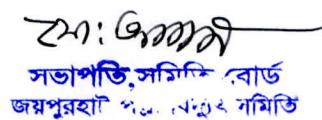 মো:
সভাপতি, সমিতি বোর্ড
জয়পুরহাট পল্লী বিদ্যুৎ সমিতি